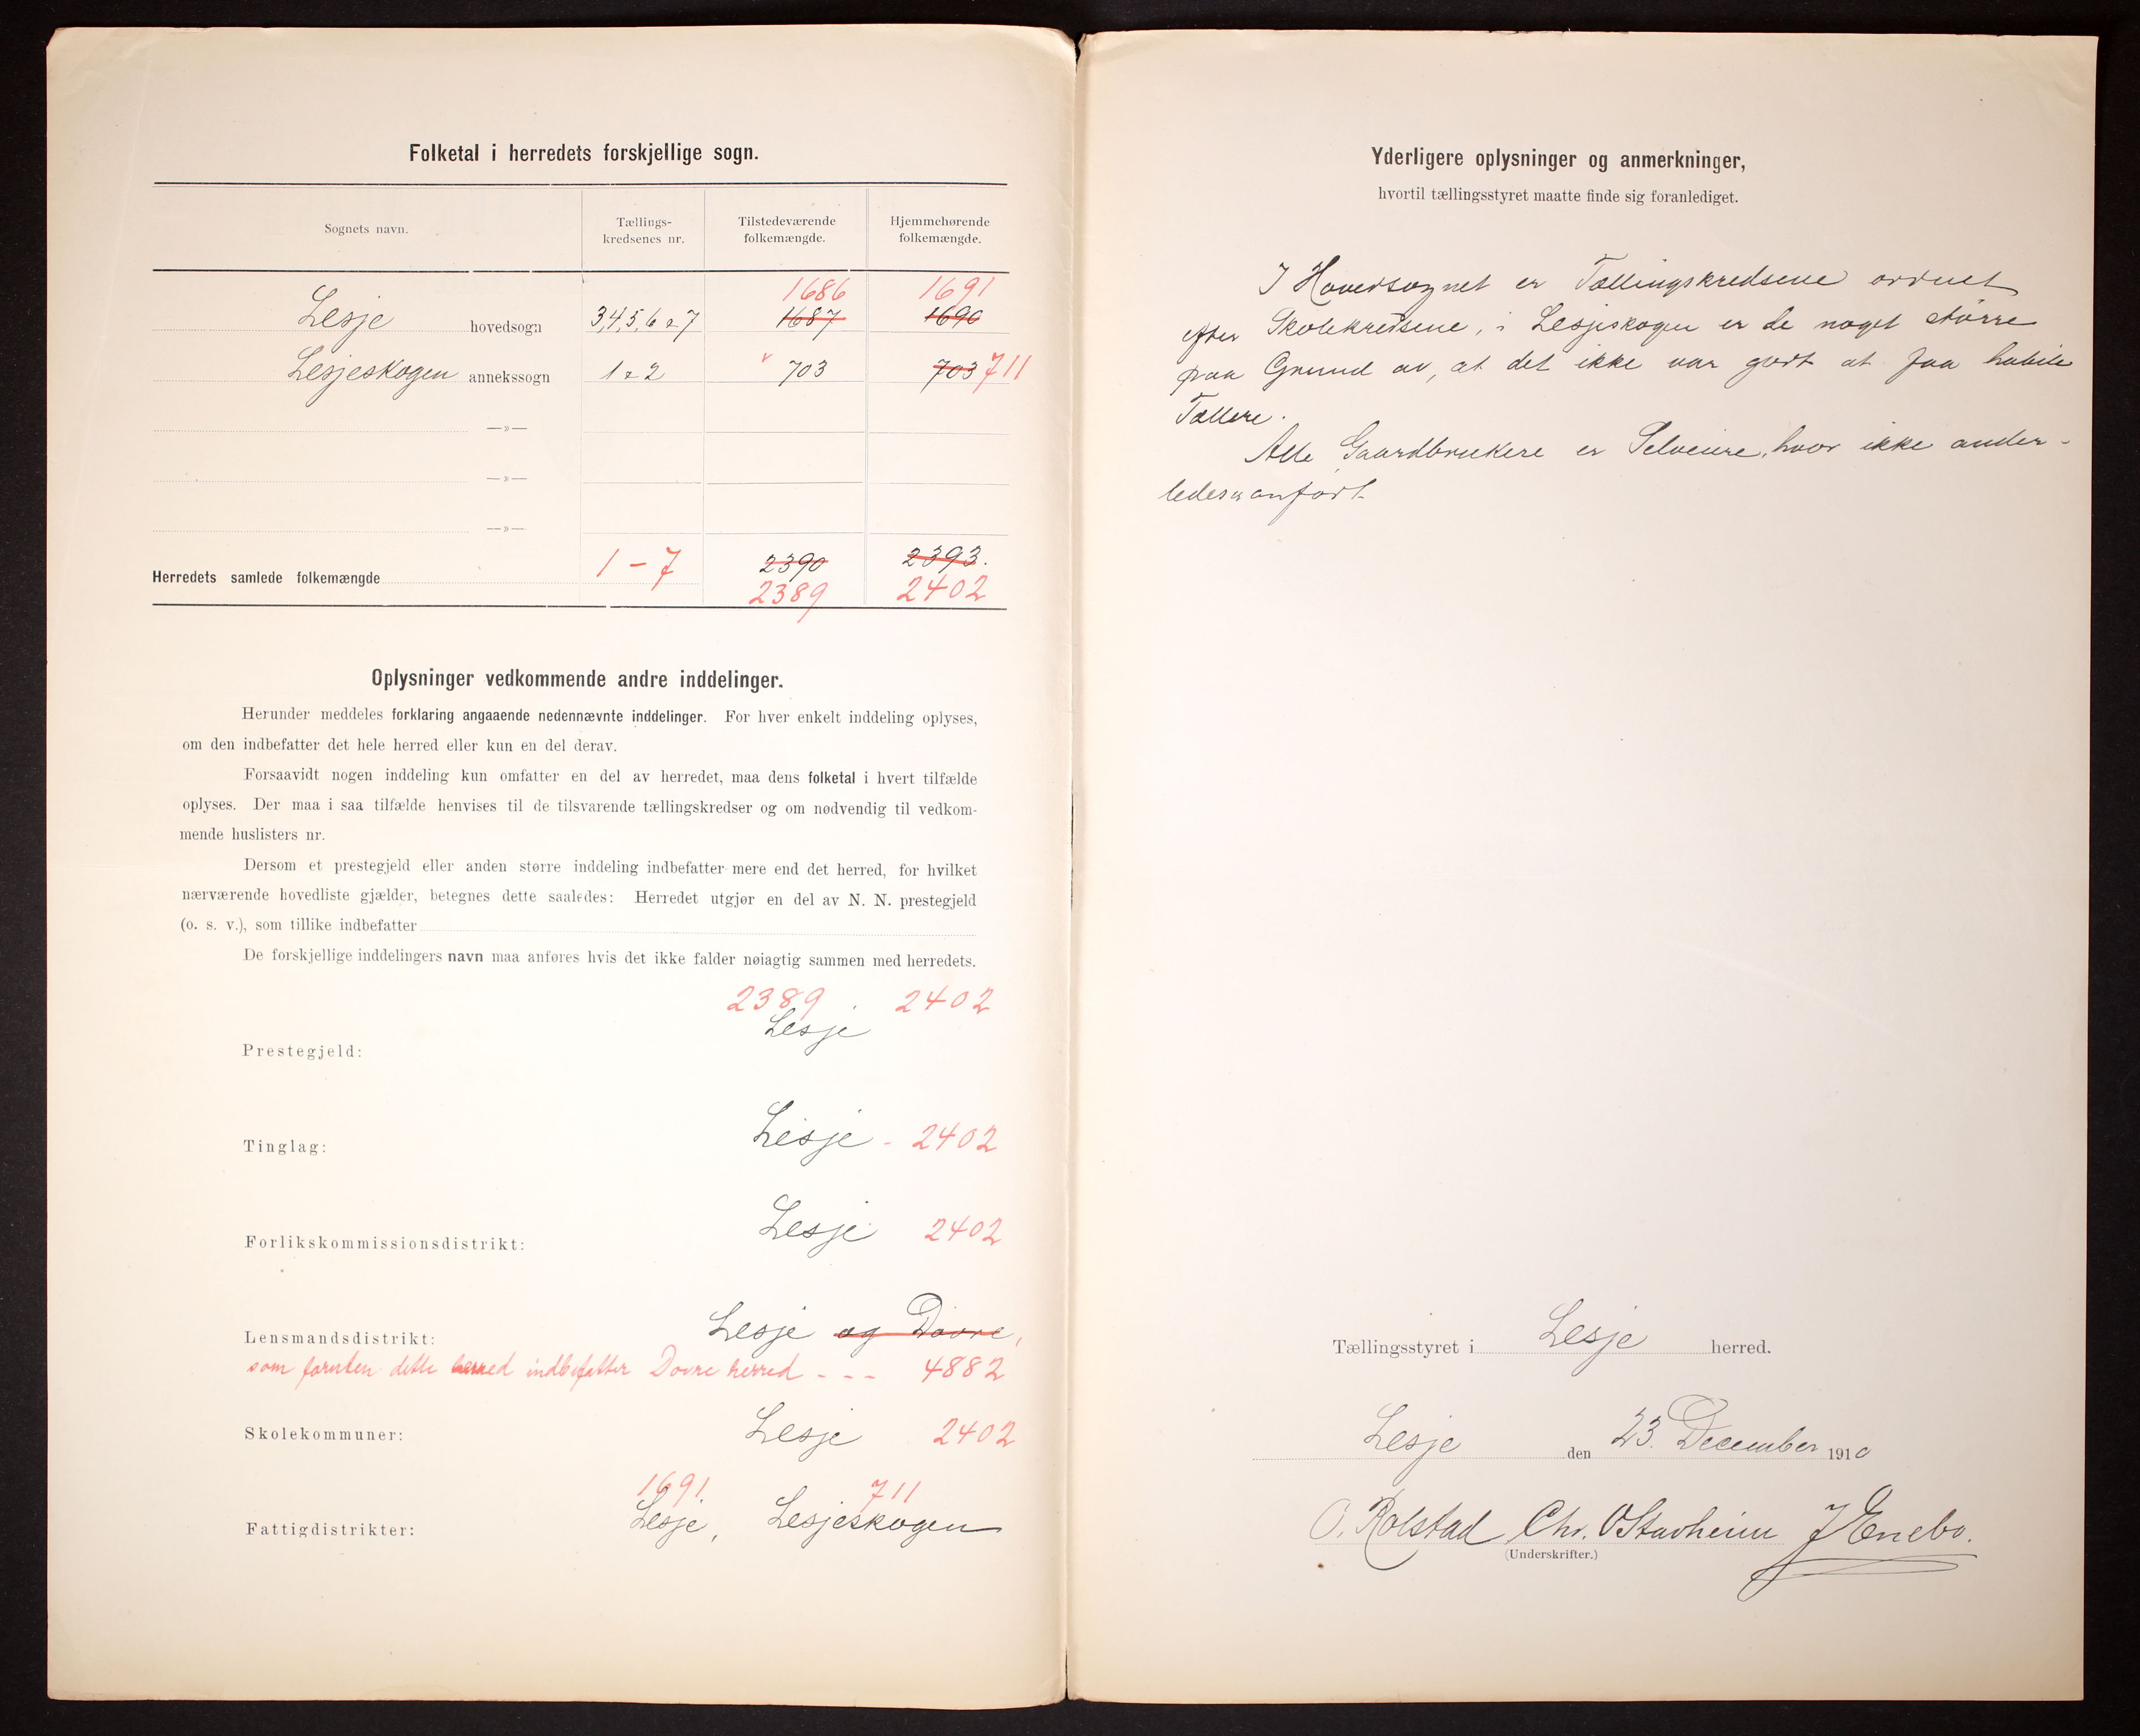 Folketal i herredets forskjellige sogn.
Sognets navn.
Tællings-
kredsenes nr.
Tilstedeværende
folkemængde.
Hjemmehørende
folkemængde.
1686 1691
Lesje hovedsogn 3,4,5,6 & 7 1687 1690
Lesjeskogen annekssogn 1 & 2 703 703 711
—»—
—»—
—»—
Herredets samlede folkemængde 1 – 7 2390 2393.
2389 2402
Oplysninger vedkommende andre inddelinger.
Herunder meddeles forklaring angaaende nedennævnte inddelinger. For hver enkelt inddeling oplyses,
om den indbefatter det hele herred eller kun en del derav.
Forsaavidt nogen inddeling kun omfatter en del av herredet, maa dens folketal i hvert tilfælde
oplyses. Der maa i saa tilfælde henvises til de tilsvarende tællingskredser og om nødvendig til vedkom-
mende huslisters nr.
Dersom et prestegjeld eller anden større inddeling indbefatter mere end det herred, for hvilket
nærværende hovedliste gjælder, betegnes dette saaledes: Herredet utgjør en del av N. N. prestegjeld
(o. s. v.), som tillike indbefatter
De forskjellige inddelingers navn maa anføres hvis det ikke falder nøiagtig sammen med herredets.
2389 . 2402
Lesje
Prestegjeld:
Tinglag: Lesje - 2402
Forlikskommissionsdistrikt: Lesje 2402
Lensmandsdistrikt: Lesje og Dovre,
som foruten dette herred indbefatter Dovre herred - - - 4882
Skolekommuner: Lesje 2402
1691 711
Fattigdistrikter: Lesje, Lesjeskogen
Yderligere oplysninger og anmerkninger,
hvortil tællingsstyret maatte finde sig foranlediget.
I Hovedsognet er Tællingskredsene ordnet
efter Skolekredsene, i Lesjeskogen er de noget større
paa Grund av, at det ikke var godt at faa habile
Tællere.
Alle Gaardbrukere er Selveiere, hvor ikke ander-
ledes er anført.
Tællingsstyret i Lesje herred.
Lesje den 23. December 1910
O. Rolstad Chr. O Stavheim J Enebo.
(Underskrifter.)